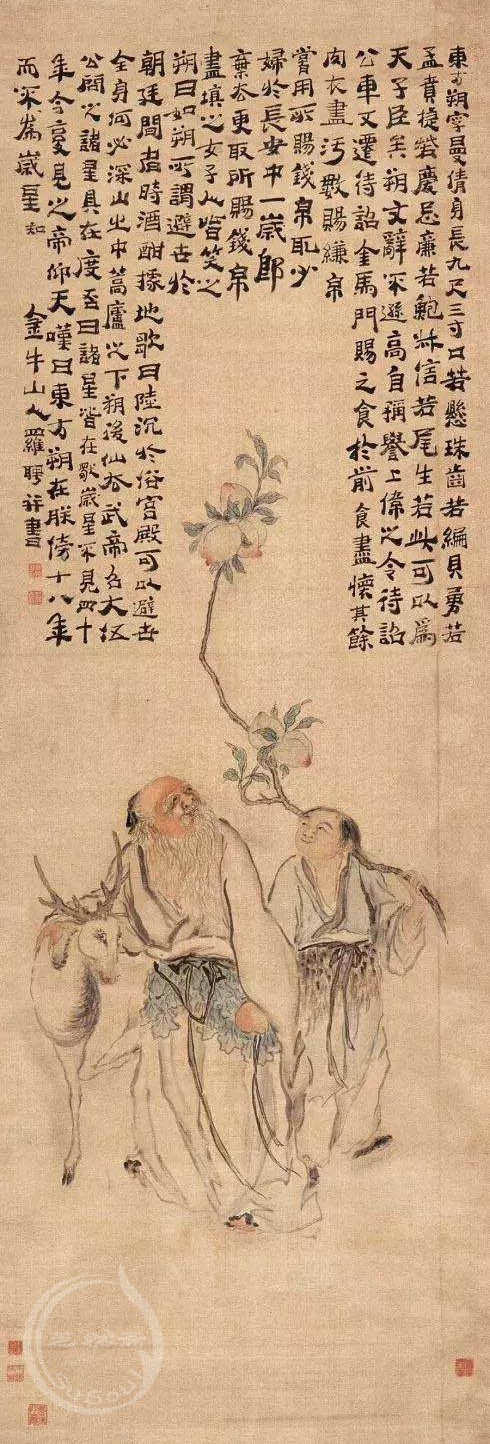 東方朔字曼倩身長九尺三寸口若懸珠齒若編貝勇若
孟賁捷若慶忌廉若鮑叔信若尾生若此可以爲
天子臣矣朔文辭不遜高自稱譽上偉之令待詔
公車又遷待詔金馬門賜之食於前食盡懷其餘
肉衣盡汚數賜縑帛
嘗用所賜錢帛取少
婦於長安中一歲卽
棄去更取所賜錢帛
盡填之女子人皆笑之
朔曰如朔所謂避世於
朝廷間者時酒酣據地歌曰陸沉於俗宮殿可以避世
全身何必深山之中蒿廬之下朔後仙去武帝召大伍
公問以諸星具在度否曰諸星皆在獨歲星不見四十
年今復見之帝仰天嘆曰東方朔在朕傍十八年
而不爲歲星知
金牛山人羅聘并書